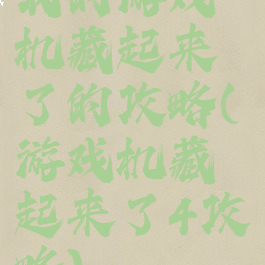 我的游戏
机藏起来
了的攻略(
游戏机藏
起来了4攻
略)